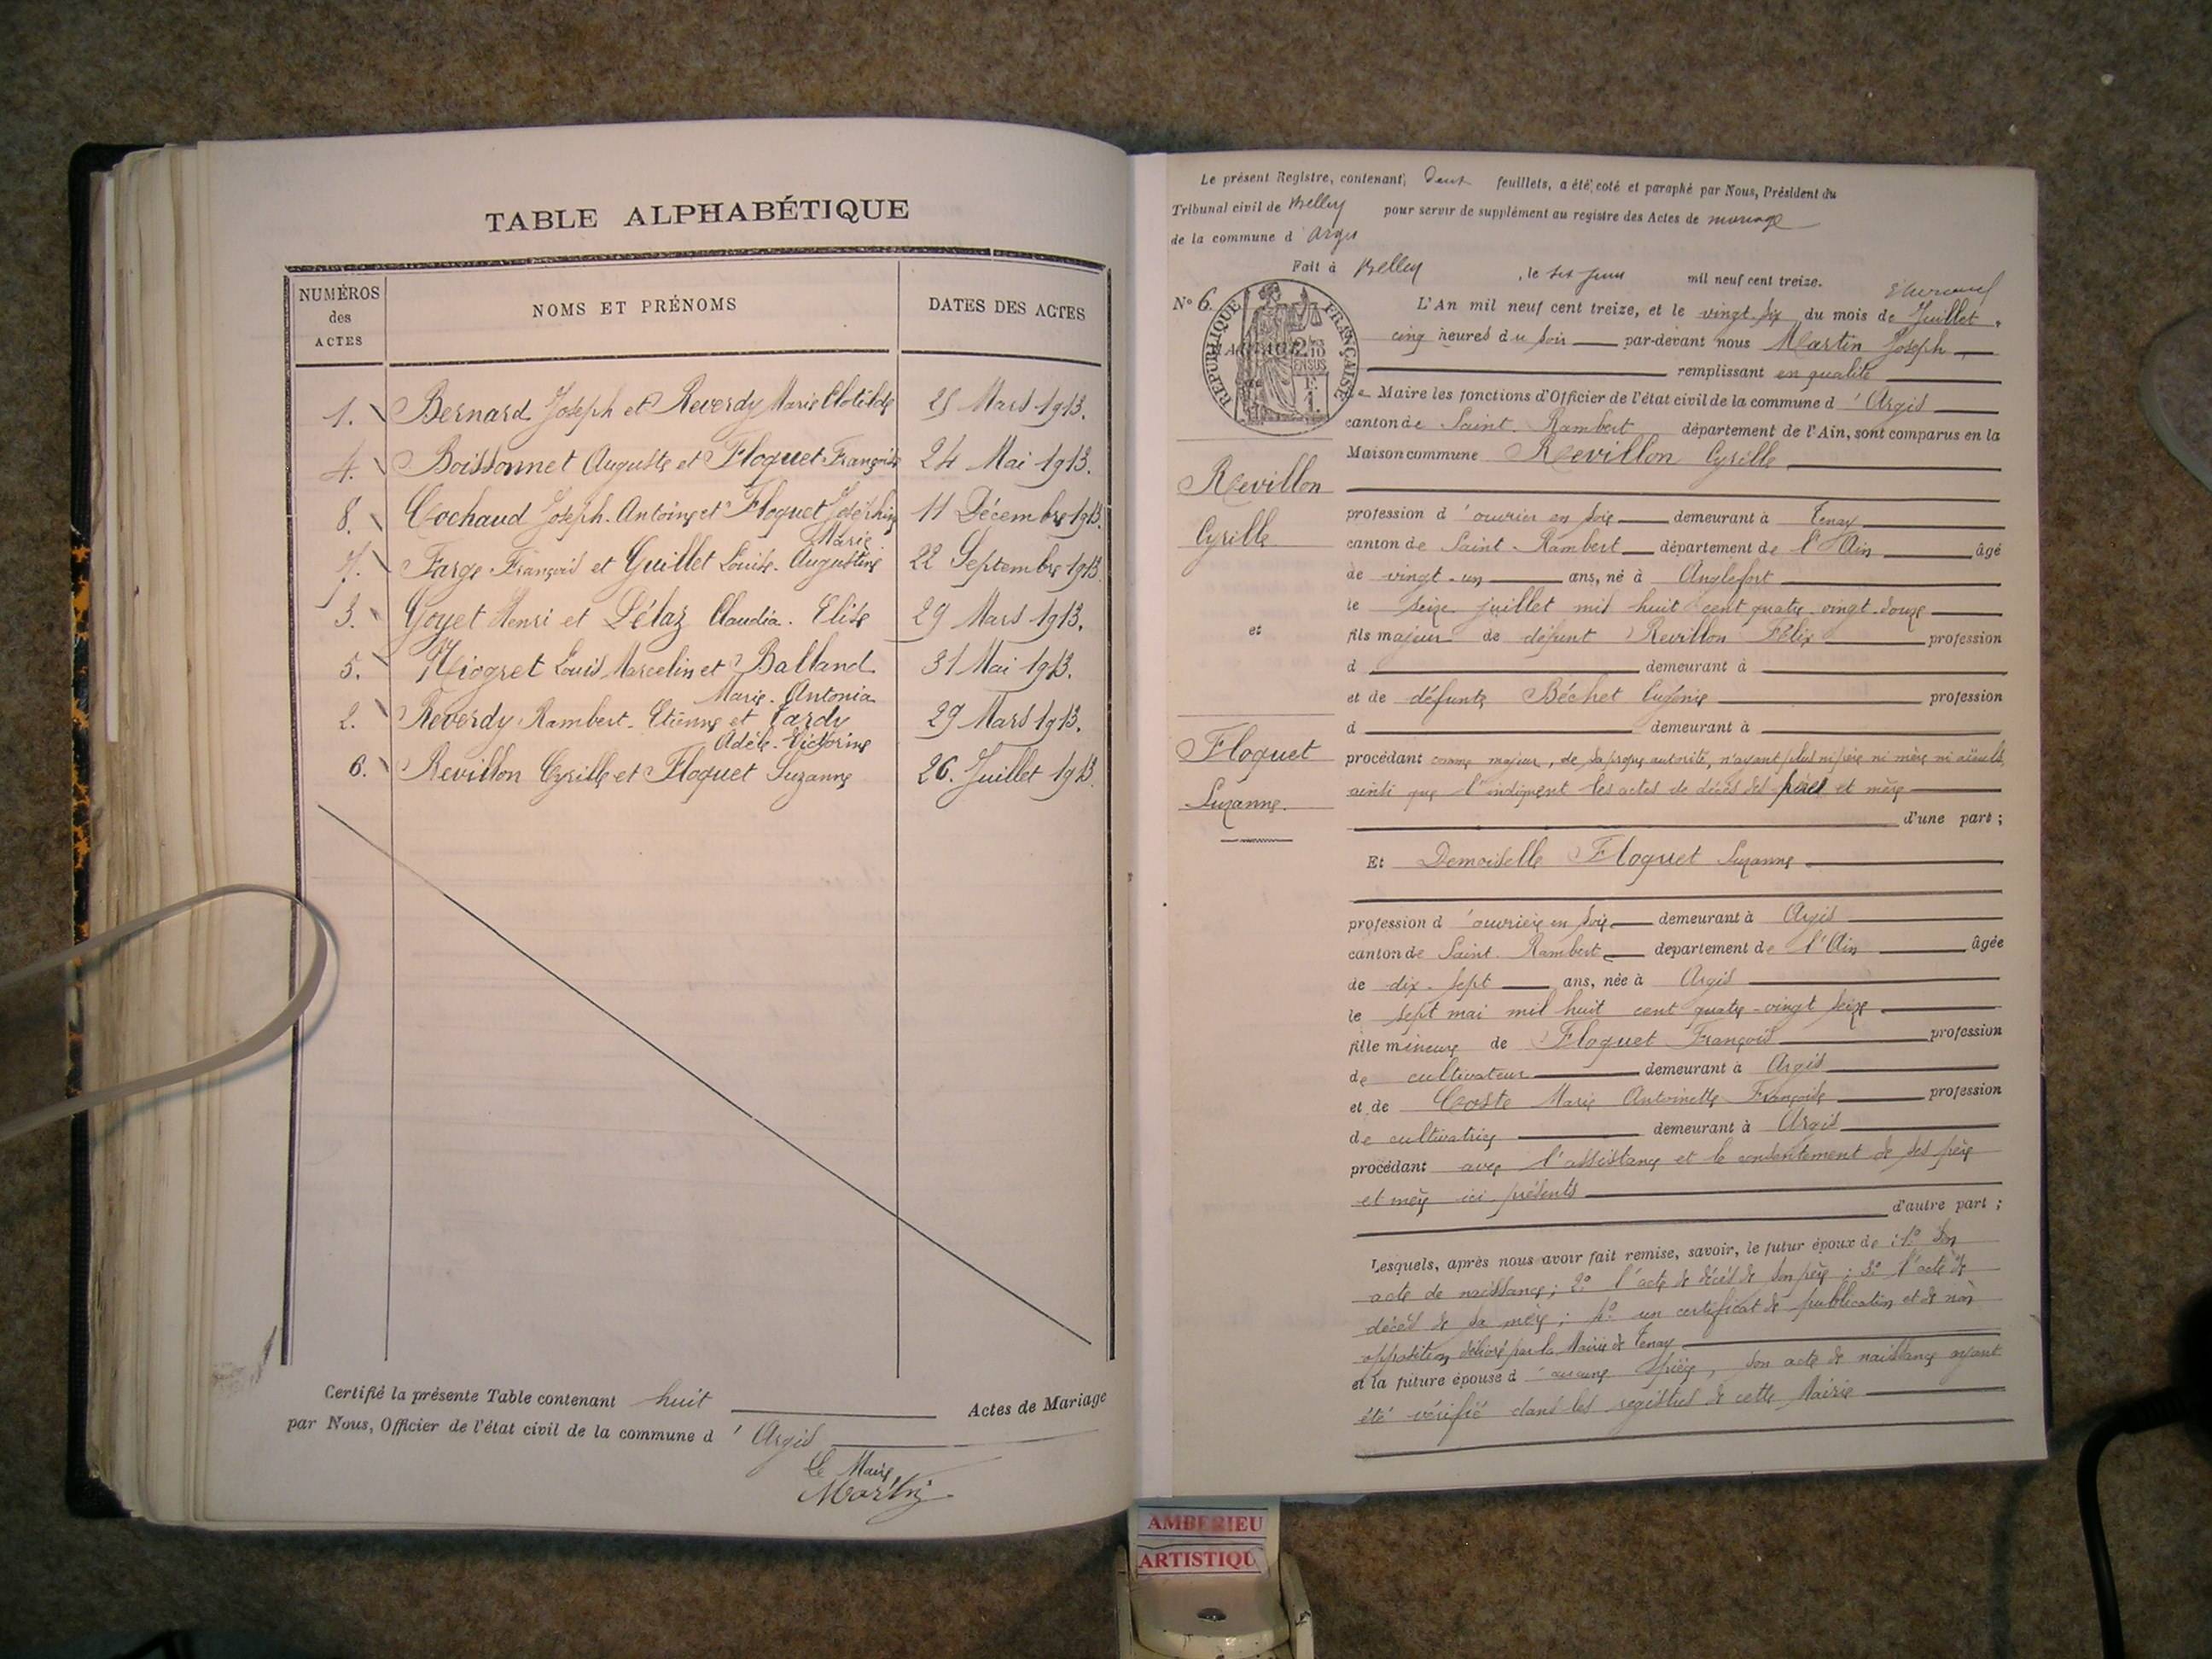 TABLE ALPHABÉTIQUE
NUMÉROS des ACTES
NOMS ET PRÉNOMS
DATES DES ACTES
1. Bernard Joseph et Reverdy Marie Clotilde 25 Mars 1913.
4. Boissonnet Auguste et Floquet Françoise 24 Mai 1913.
8. Cochaud Joseph. Antoine et Floquet Joséphine 11 Décembre 1913.
Marie
7. Farge François et Guillet Louise. Augustine 22 Septembre 1913.
3. Goyet Henri et Délaz Claudia. Elise 29 Mars 1913.
5. Miogret Louis Marcelin et Balland 31 Mai 1913.
Marie. Antonia
2. Reverdy Rambert. Etienne et Tardy 29 Mars 1913.
Adèle. Victorine
6. Revillon Cyrille et Floquet Suzanne 26. Juillet 1913
Certifié la présente Table contenant huit Actes de Mariage
par Nous, Officier de l'état civil de la commune d 'Argis
Le Maire
Martin
Le présent Registre, contenant, deux feuillets, a été coté et paraphé par Nous, Président du
Tribunal civil de Belley pour servir de supplément au registre des Actes de mariage
de la commune d Argis
Fait à Belley, le six juin mil neuf cent treize.
N° 6.
RÉPUBLIQUE FRANÇAISE
L'An mil neuf cent treize, et le vingt six du mois de Juillet,
cinq heures du soir par-devant nous Martin Joseph
remplissant en qualité
de Maire les fonctions d'Officier de l'état civil de la commune d 'Argis
canton de Saint. Rambert département de l'Ain, sont comparus en la
Maison commune Revillon Cyrille
Revillon
Cyrille
et
Floquet
Suzanne.
profession d 'ouvrier en soie demeurant à Tenay
canton de Saint-Rambert département de l'Ain âgé
de vingt-un ans, né à Anglefort
le seize juillet mil huit cent quatre-vingt-douze
fils majeur de défunt Revillon Félix profession
d demeurant à
et de défunte Béchet Eugénie profession
d demeurant à
procédant comme majeur, de sa propre autorité, n'ayant plus ni père ni mère ni aïeuls
ainsi que l'indiquent les actes de décès des pères et mère
d'une part ;
Et Demoiselle Floquet Suzanne
profession d 'ouvrière en soie demeurant à Argis
canton de Saint. Rambert département de l'Ain âgée
de dix-sept ans, née à Argis
le sept mai mil huit cent quatre-vingt seize
fille mineure de Floquet François profession
de cultivateur demeurant à Argis
et de Coste Marie Antoinette Françoise profession
de cultivatrice demeurant à Argis
procédant avec l'assistance et le consentement de ses père
et mère ici présents
d'autre part ;
Lesquels, après nous avoir fait remise, savoir, le futur époux de : 1° Son
acte de naissance ; 2° l'acte de décès de son père ; 3° l'acte de
décès de sa mère ; 4° un certificat de publication et de non
opposition délivré par la Mairie de Tenay
et la future épouse d 'aucune pièce, son acte de naissance ayant
été vérifié dans les registres de cette Mairie
AMBERIEU
ARTISTIQU